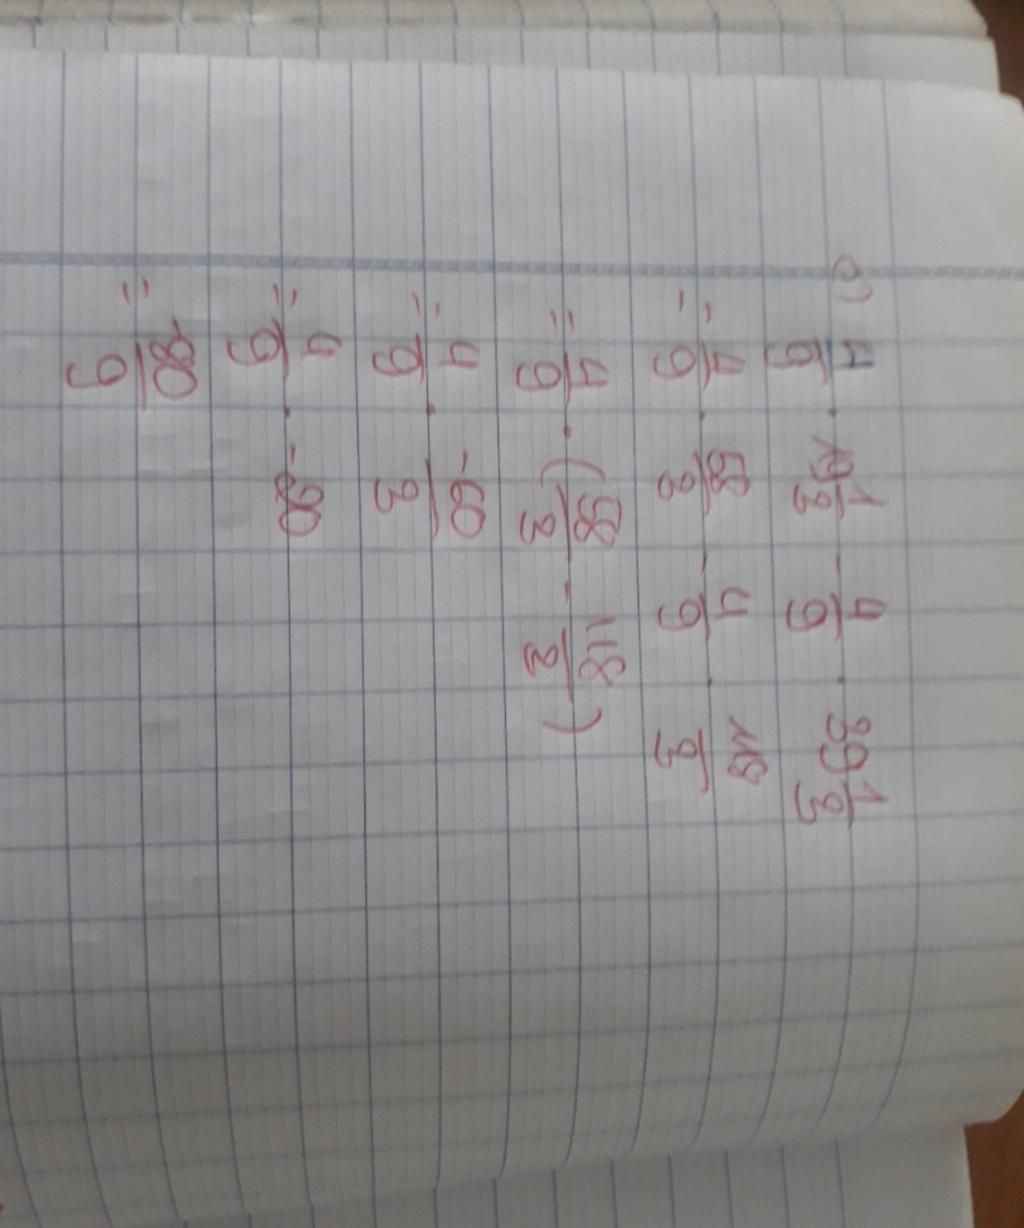 c) 4/9 . 19 1/3 - 4/9 . 39 1/3
= 4/9 . 58/3 - 4/9 . 118/3
= 4/9 . (58/3 - 118/3)
= 4/9 . -60/3
= 4/9 . -20
= -80/9